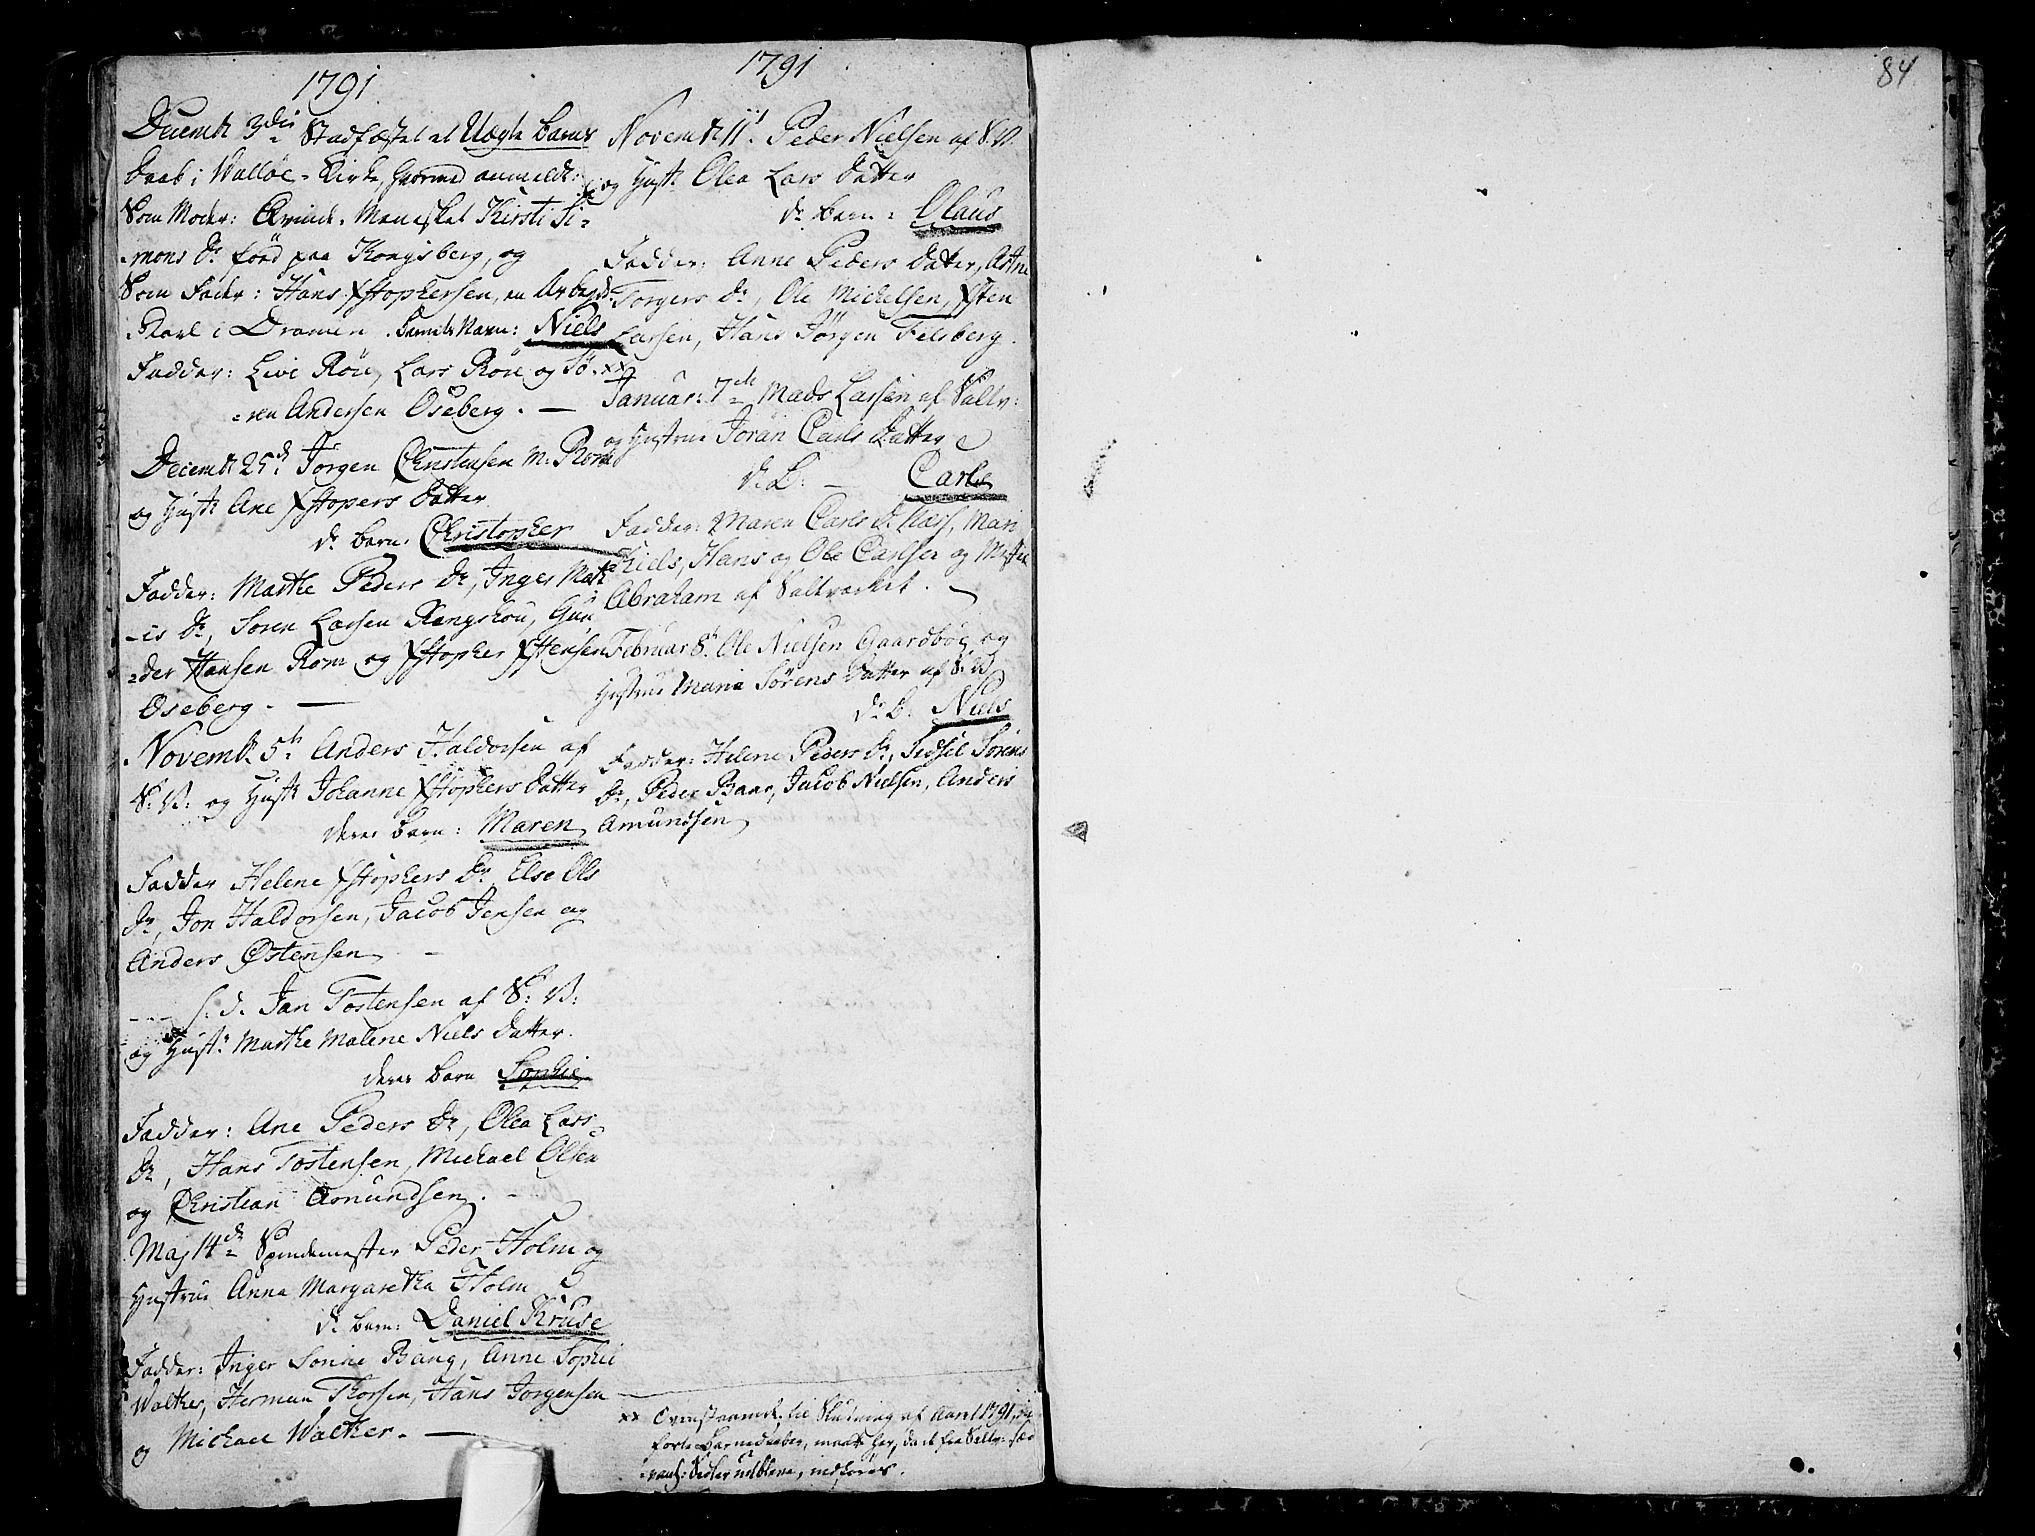 1791
Decemb 3die Stadfæstet et Uægte barns
Daab i Walløe-Kirke, hvormed anmeldt:
Som Moder: Qvinde-Mennesket Kirsti Si-
mons Dr. fød paa Kongsberg, og
Som Fader: Hans Xstophersen, en Arbejds
Karl i Dramen. barnets Navn: Niels
Fadder: Live Röe, Lars Röe og Sö-
ren Andersen Oseberg. —
Decemb 25de Jörgen Christensen M: Rom
og Hust: Ane Xstophers Datter
Dr. barn: Christopher
Fadder: Marthe Peders Dr, Inger Math
is Dr, Soren Larsen Kongskou, Gun
der Hansen Rom og Xstopher Xstensen
Oseberg. —
Novemb. 5te Anders Haldorsen af
S: V: og Hust: Johanne Xstophers Datter
deres barn: Maren
Fadder Helene Xstophers Dr, Else Ols
Dr, Jon Haldorsen, Jacob Jensen og
Anders Østensen —
— s. d. Jan Tostensen af S: V:
og Hust: Marthe Malene Niels Datter.
deres barn Sophie
Fadder: Ane Peders Dr, Olea Lars
Dr, Hans Tostensen, Michael Olsen
og Christian Amundsen. —
Maj 14de Spindemester Peder Holm og
Hustrue Anna Margaretha Holm
Dr. barn: Daniel Kruse
Fadder: Inger Sophie Bang, Anne Sophie
Walker, Herman Thorsen, Hans Jorgensen
og Michael Walker. —
1791
Novemb 11te Peder Nielsen af S. V.
og Hust: Olea Lars Datter
Dr. barn: Olaus
Fadder: Anne Peders Datter, Astne
Torgers Dr, Ole Michelsen, Xsten
Larsen, Hans Jörgen Felsberg.
xx
Januar: 7de Mads Larsen af Saltv:
og Hustrue Joran Carls Datter
Dr. B: — Carl
Fadder: Maren Carls Dr, Mari
Niels, Hans og Ole Carlsen og
Abraham af Saltverket. —
Februar 8de Ole Nielsen Gaardbog og
Hustrue Marie Sörens Datter af S: V
Dr. B: Niels
Fadder: Helene Peders Dr, Sidsel Sörens
Dr, Peder Baar, Jacob Nielsen, Anders
Amundsen
xx Ovenstaaende til Slutning af Aaret 1791
forte Barnedaaber, maatte her, da de fra Saltv:
Sedler udbleve, indföres.
84